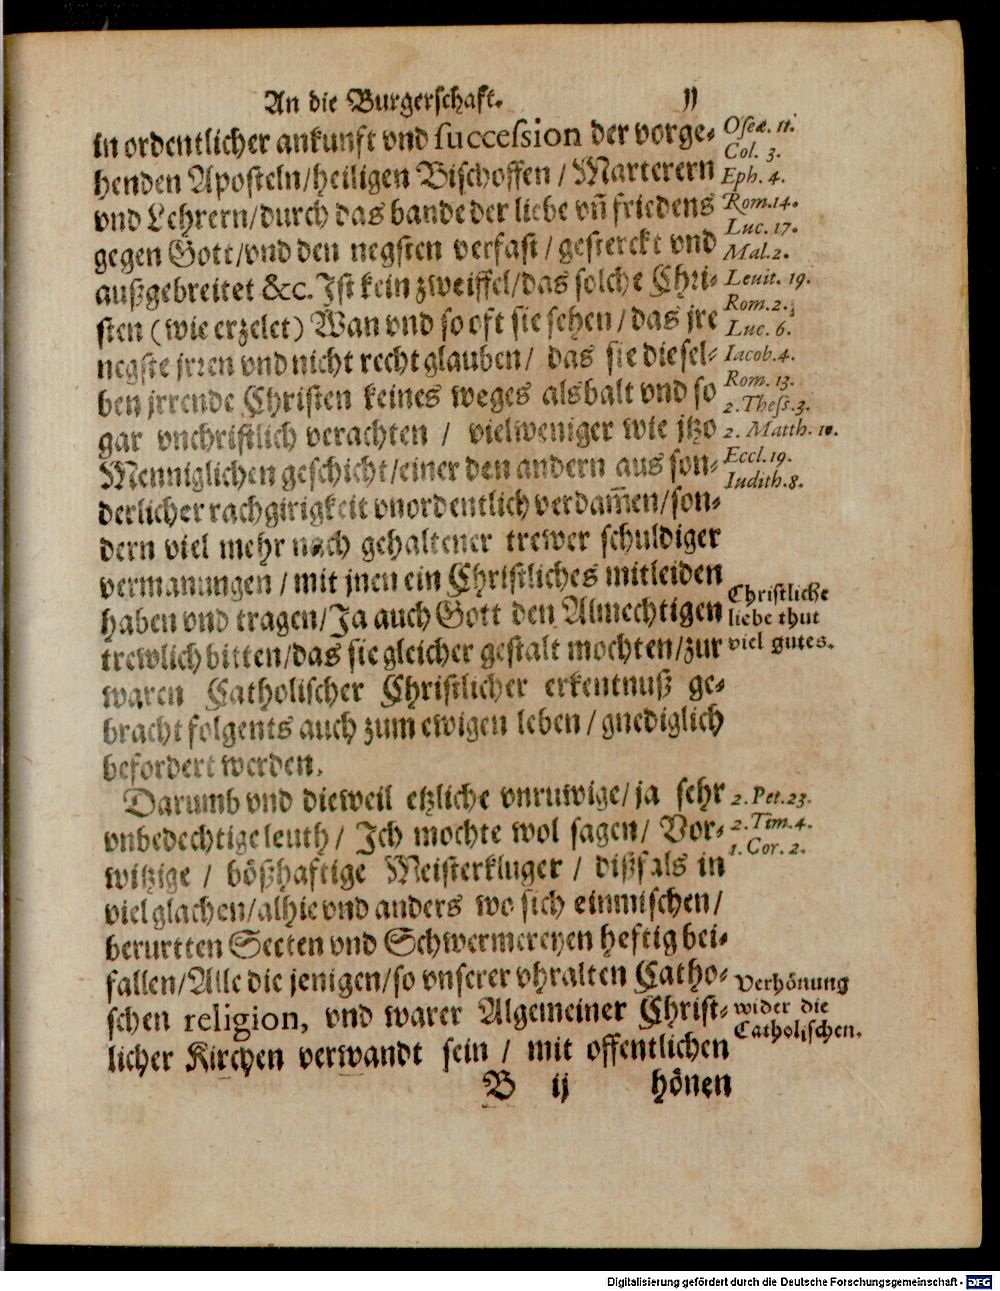 An die Burgerschaft. 11
in ordentlicher ankunft vnd succession der vorge-
henden Aposteln/heiligen Bischoffen / Marterern
vnd Lehrern/durch das bande der liebe vñ friedens
gegen Gott/vnd den negsten verfast / gesterckt vnd
außgebreitet &c. Ist kein zweiffel/das solche Chri-
sten (wie erzelet) Wan vnd so oft sie sehen / das jre
negste jrren vnd nicht recht glauben / das sie diesel-
ben jrrende Christen keines weges alsbalt vnd so
gar vnchristlich verachten / vielweniger wie jtzo
Menniglichen geschicht/einer den andern aus son-
derlicher rachgirigkeit vnordentlich verdam̃en/son-
dern viel mehr nach gehaltener trewer schuldiger
vermanungen / mit jnen ein Christliches mitleiden
haben vnd tragen/Ja auch Gott den Almechtigen
trewlich bitten/das sie gleicher gestalt mochten/zur
waren Catholischer Christlicher erkentnuß ge-
bracht folgents auch zum ewigen leben / gnediglich
befordert werden.
Darumb vnd dieweil etzliche vnruwige/ ja sehr
vnbedechtige leuth / Ich mochte wol sagen/ Vor-
witzige / bößhaftige Meisterkluger / dißfals in
vielglachen/alhie vnd anders wo sich einmischen/
berurtten Secten vnd Schwermereyen heftig bei-
fallen/Alle die jenigen/so vnserer vhralten Catho-
schen religion, vnd warer Algemeiner Christ-
licher Kirchen verwandt sein / mit offentlichen
B ij hönen
Oseæ. 11.
Col. 3.
Eph. 4.
Rom. 14.
Luc. 17.
Mal. 2.
Leuit. 19.
Rom. 2.
Luc. 6.
Iacob. 4.
Rom. 13.
2. Thess. 3.
2. Matth. 18.
Eccl. 19.
Iudith. 8.
Christliche
liebe thut
viel gutes.
2. Pet. 23.
2. Tim. 4.
1. Cor. 2.
Verhönung
wider die
Catholischen.
Digitalisierung gefördert durch die Deutsche Forschungsgemeinschaft - DFG